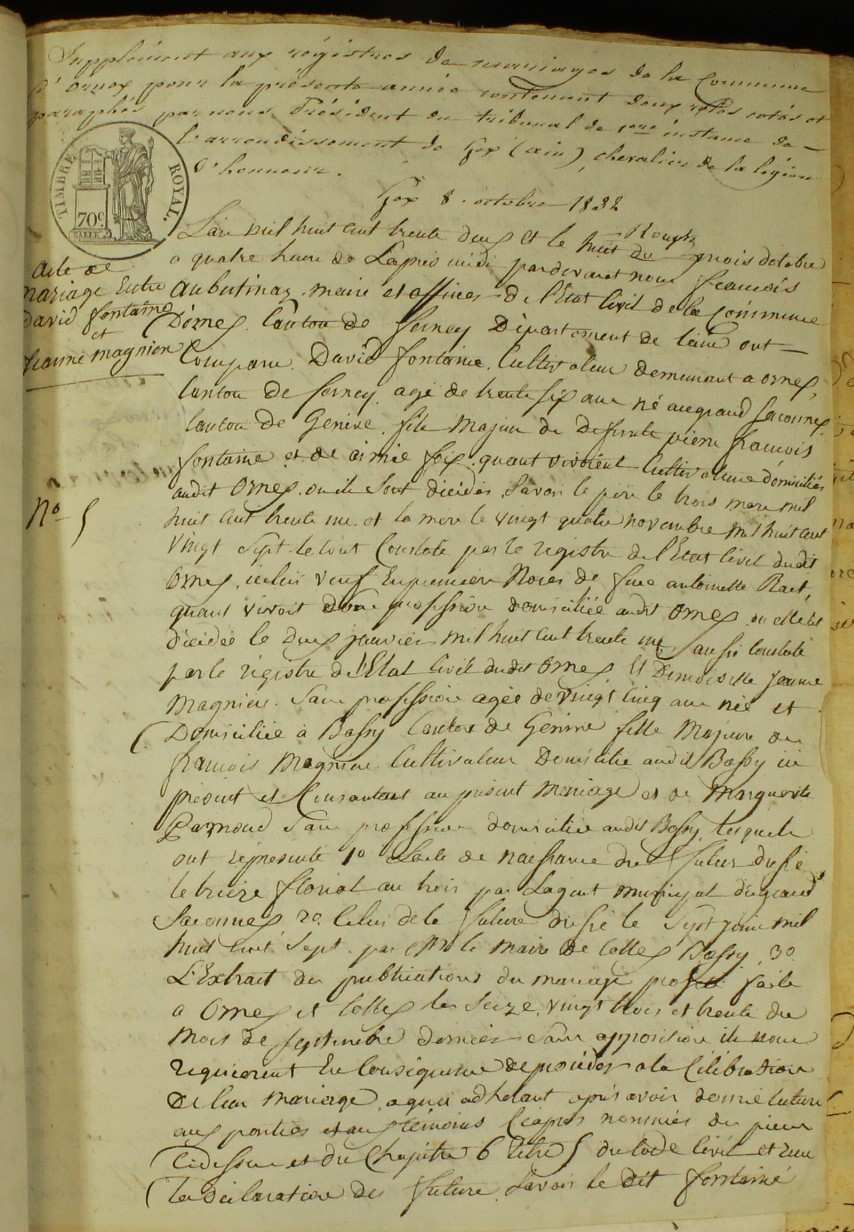 Supplément aux régistres de mariages de la Commune
d'Ornex pour la présente année contenant deux rôles cotés et
paraphés par nous Président du tribunal de 1ere instance de
l'arrondissement de Gex (ain), chevalier de la légion
d'honneur.
Gex 8. octobre 1832
TIMBRE ROYAL.
70c
L'an mil huit cent trente deux et le huit du mois doctobre
a quatre heure de Lapres midi pardevant nous françois
aubutinaz. maire et officier de l'Etat Civil de la Commune
D'ornex. Canton de ferney Département de l'ain ont
acte de
mariage Entre
David fontaine
et
jeanne magnien
Comparu. David fontaine. Cultivateur demeurant a ornex,
Canton de ferney. agé de trente six ans né au grand saconnex
Canton de Genève. fils majeur de deffunts pierre françois
fontaine et de aimée quant vivoient Cultivateurs domiciliés
audit Ornex. ou ils sont décédés. Savoir le père le trois mars mil
No 5
huit cent trente un. et la mere le vingt quatre novembre mil huit cent
vingt Sept. le tout Constaté par le registre de l'Etat Civil dudit
Ornex. icelui veuf En premiere Noces de feue antoinette
quant vivoit Sans profession domiciliée audit Ornex. ou elle est
décédée le deux janvier mil huit cent trente un aussi constaté
par le registre de l'Etat Civil dudit Ornex Et Demoiselle jeanne
Magnien. Sans profession agée de vingt cinq ans née et
Domiciliée à Bossy Canton de Genève fille Majeure de
françois Magnien Cultivateur Domicilié audit Bossy ici
présent et Consentant au présent Mariage et de Marguerite
Sans profession domiciliée audit Bossy, lesquels
ont représenté 1o Lacte de naissance du futur dressé
le treize floréal an trois par Lagent municipal du grand
Saconnex 2o Celui de la future dressé le Sept juin mil
huit cent Sept. par Mr le Maire de Collex Bossy. 3o
L'Extrait des publications du mariage faite
a Ornex et Collex les Seize, vingt trois et trente du
Mois de Septembre dernier sans opposition ils nous
requierent En Conséquence de procéder a la Célébration
de leur mariage. a quoi adhérant après avoir donné lecture
aux parties et aux témoins Ciapres nommés des pieces
Cidessus et du Chapitre 6 titre 5 du Code Civil et reçu
la Déclaration des futurs. Savoir le dit fontaine